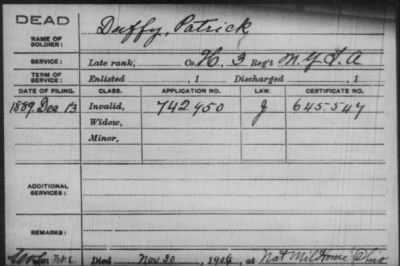 DEAD
NAME OF SOLDIER: Duffy, Patrick
SERVICE: Late rank, Co. H, 3 Reg't N.Y.L.A
TERM OF SERVICE: Enlisted , 1 Discharged , 1
DATE OF FILING. CLASS. APPLICATION NO. LAW. CERTIFICATE NO.
1889. Dec. 13 Invalid, 742450 J 645.547
Widow,
Minor,
ADDITIONAL SERVICES:
REMARKS:
Died Nov 20, 1906, at Nat Mil Home Ohio